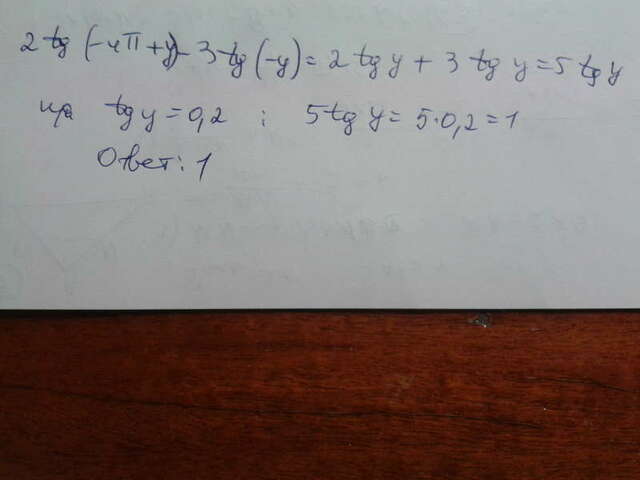 2 tg (-4π + y) - 3 tg (-y) = 2 tg y + 3 tg y = 5 tg y
tg y = 0,2 ; 5 tg y = 5·0,2 = 1
Ответ: 1